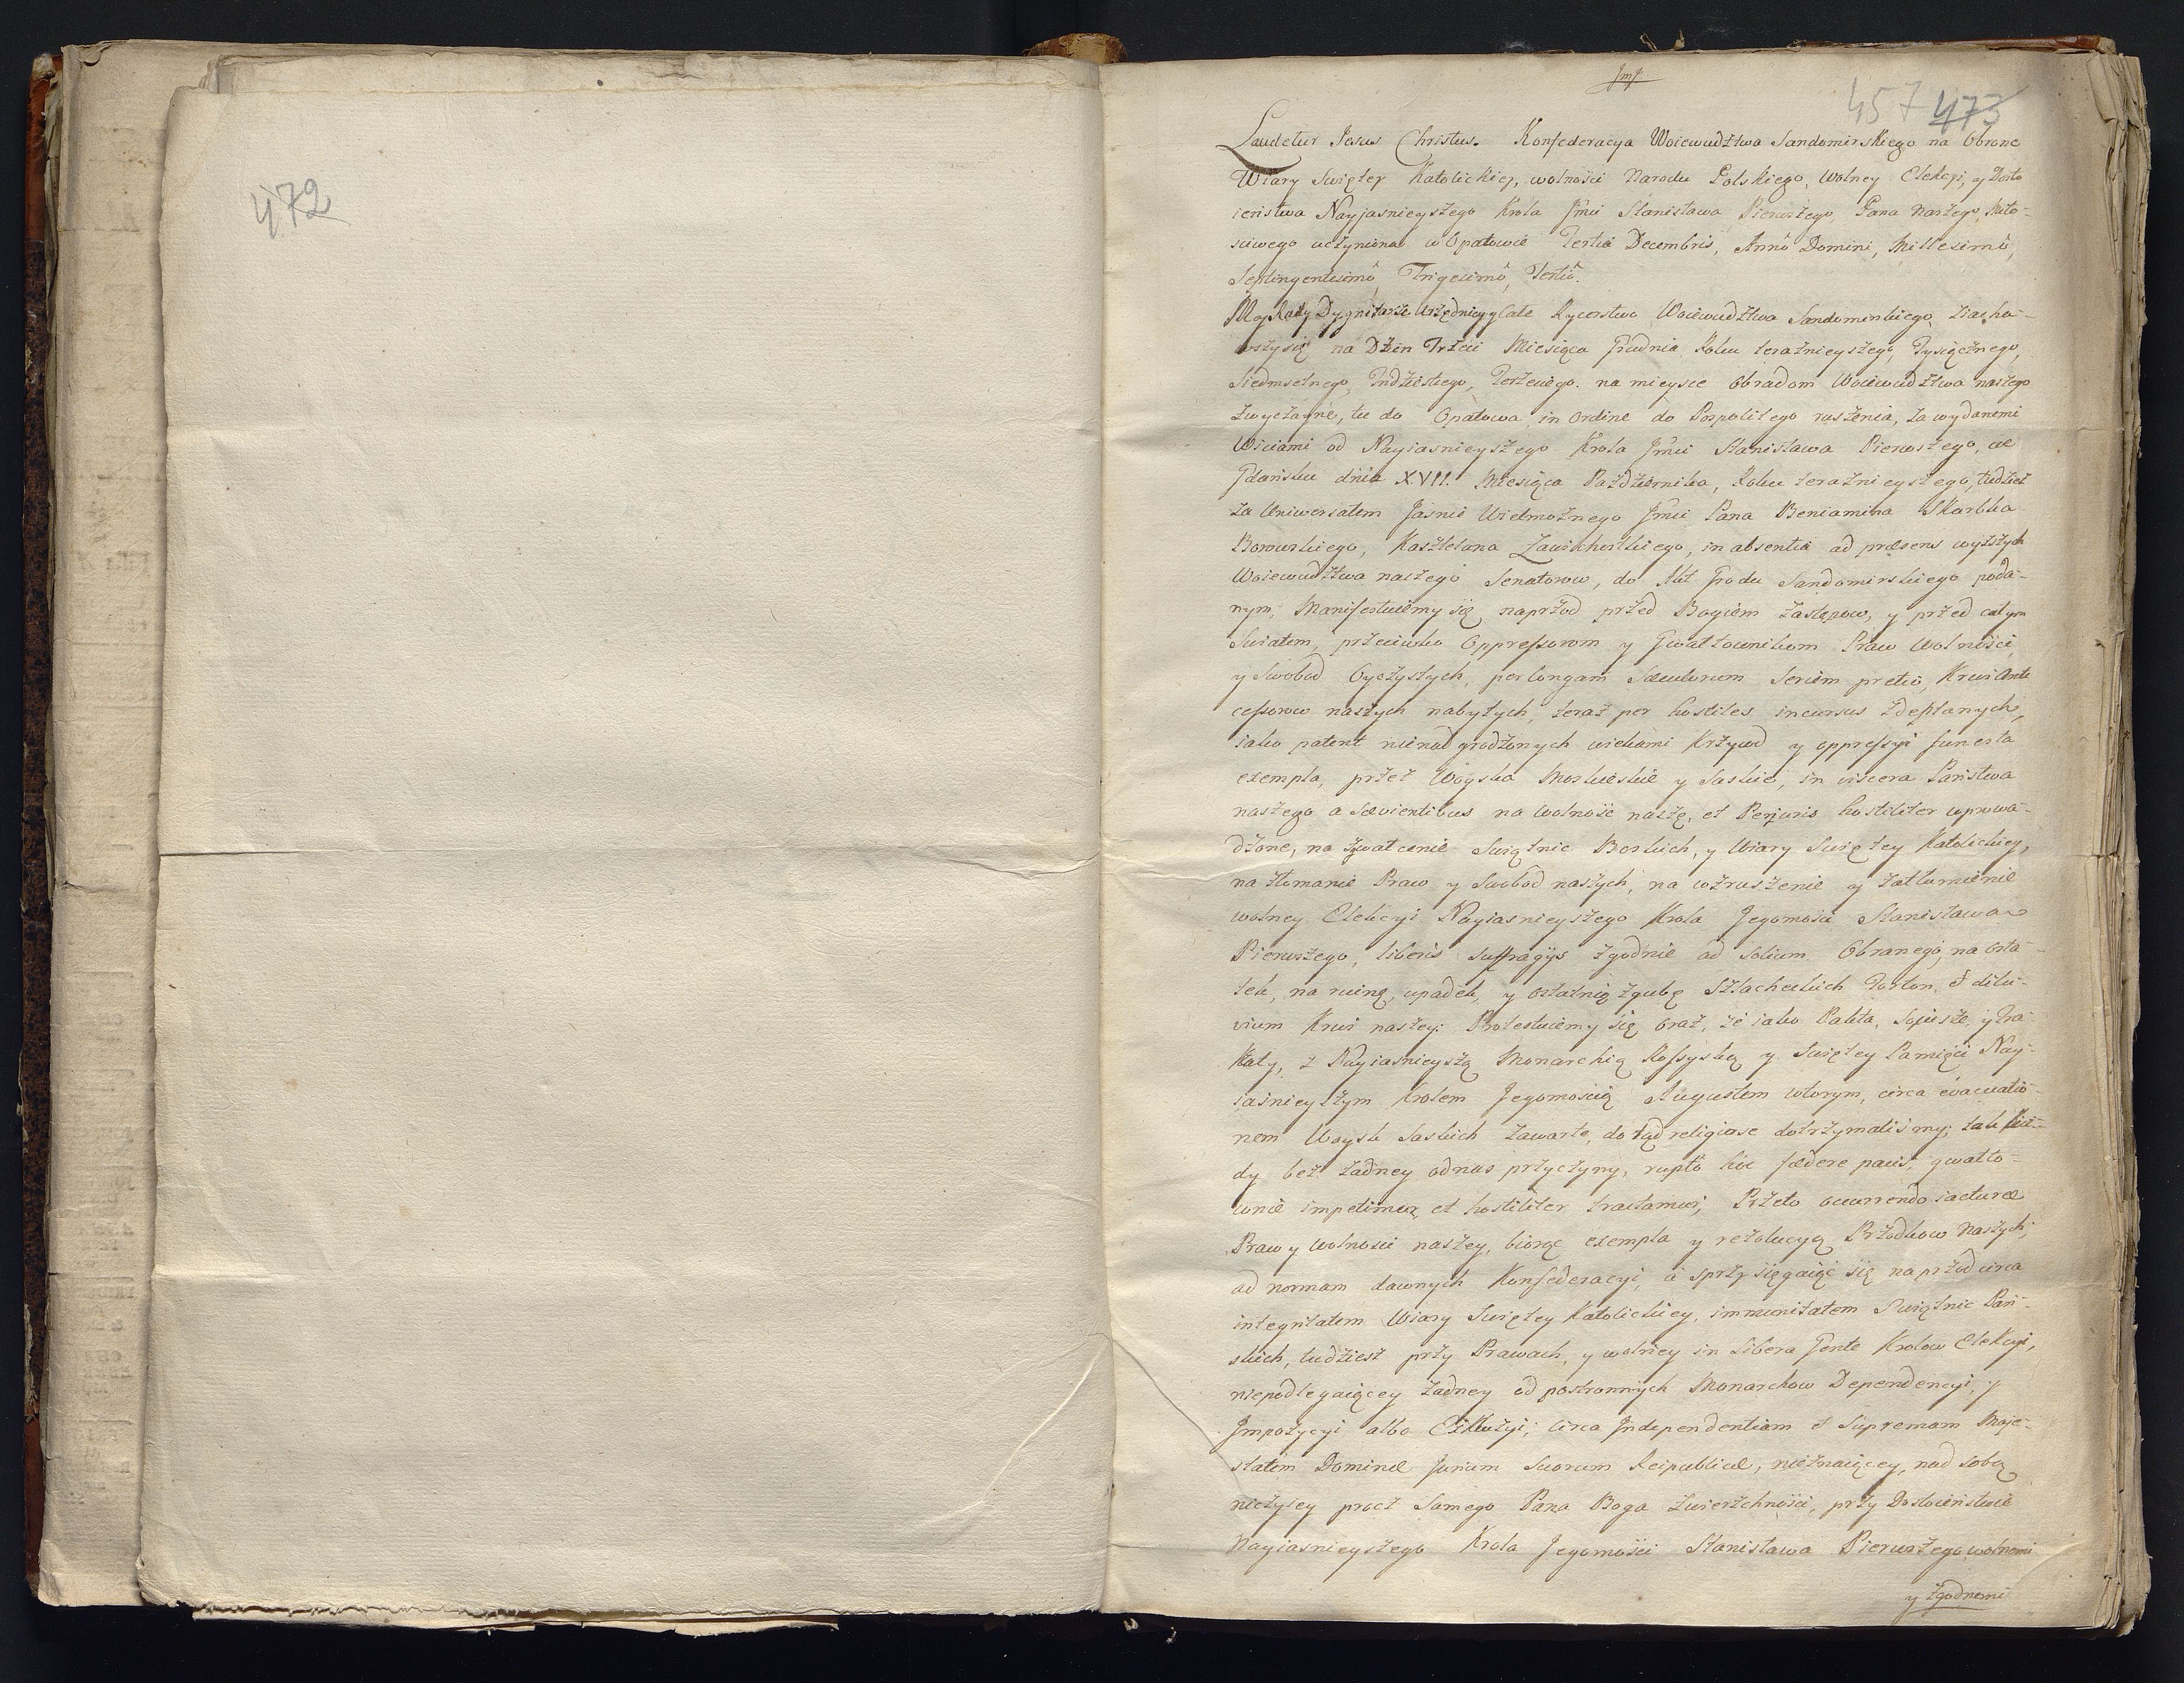 472
JMJ
457 473
Laudetur Jesus Christus. Konfederacya Woiewudztwa Sandomirskiego na Obronę
Wiary Swiętey Katolickiey, wolności Narodu Polskiego, Wolney Elekcyi, y Dosto
ieństwa Nayjasnieyszego Krola Jmci Stanisława Pierwszego, Pana Naszego, Miło-
sciwego uczyniona w Opatowie Tertia Decembris, Anno Domini, Millesimô,
Septingentesimô, Trigesimô, Tertiô.
My Rady Dygnitarze Urzędnicy y Całe Rycerstwo Woiewudztwa Sandomirskiego, ziacha-
wszysię na Dzien Trzeci Miesiąca Grudnia Roku teraznieyszego, Tysiącznego,
Siedmsetnego, Trdziestego, Terzeciego. na mieysce Obradom Woiewudztwa naszego
zwyczayne, tu do Opatowa, in Ordine do Pospolitego ruszenia, za wydanemi
Wiciami od Nayiasnieyszego Krola Jmci Stanisława Pierwszego, we
Gdansku dnia XVII. Miesiąca Pazdziernika, Roku teraznieyszego, tudziesz
za Uniwersałem Jasnie Wielmożnego Jmci Pana Beniamina Skarbka
Borowskiego, Kasztelana Zawichostkiego, in absentia ad præsens wyższych
Woiewudztwa naszego Senatorow, do Akt Grodu Sandomirskiego poda-
nym, Manifestuiemy się naprzod przed Bogiem Zastępow, y przed całym
Swiatem, przeciwko Oppressorom y Gwałtownikom Praw Wolności,
y Swobod Oyczystych, per longam Sæculorum Seriem pretio, Krwi Ante
cessorow naszych nabytych, teraz per hostiles incursus zdeptanych,
iako patent nienadgrodzonych wiekami Krzywd y oppressyi funesta
exempla, przez Woyska Moskieskie y Saskie, in viscera Państwa
naszego a Sævientibus na wolność naszę, et Perjuris hostiliter wprowa-
dzone, na zgwałcenie Swiątnic Boskich, y Wiary Swiętey Katolickiey,
na złomanie Praw y Swobod naszych, na wzruszenie y zatłumienie
wolney Elekcyi Nayiasnieyszego Krola Jegomości Stanisława
Pierwszego, liberis suffragijs zgodnie ad Solium Obranego, na osta-
tek, na ruinę, upadek, y ostatnią zgubę Szlacheckich Fortun, & dilu-
vium Krwi naszey. Protestuiemy się oraz, że iako Pakta, Soiusze, y Tra
ktaty, z Nayiasnieyszą Monarchią Rossyską y Swiętey Pamięci Nay-
iasnieyszym Krolem Jegomością Augustem wtorym, circa evacuatio-
nem Woysk Saskich zawarte, dotąd religiose dotrzymalismy, tak kie-
dy bez żadney odnas przyczyny, rupto hoc fædere pacis, gwałto-
wnie impetimur et hostiliter tractamur; Przeto occurrendo iacturæ
Praw y Wolności naszey, biorąc exempla y rezolucyą Przodkow Naszych,
ad normam dawnych Konfederacyi, a sprzysięgaiąc się naprzod circa
integritatem Wiary Swiętey Katolickiey, immunitatem Swiątnic Pań-
skich, tudziesz przy Prawach, y wolney in Libera Gente Krolow Elekcyi,
niepodlegaiącey żadney od postronnych Monarchow Dependencyi, y
Impozycyi albo Exkluzyi; circa Independentiam et Supremam Maje-
statem Dominæ Jurium Suorum Reipublicæ, nieznaiącey, nad sobą
niczyiey procz Samego Pana Boga Zwierzchności, przy Dostoieństwie
Nayiasnieyszego Krola Jegomości Stanisława Pierwszego wolnemi
y zgodnemi